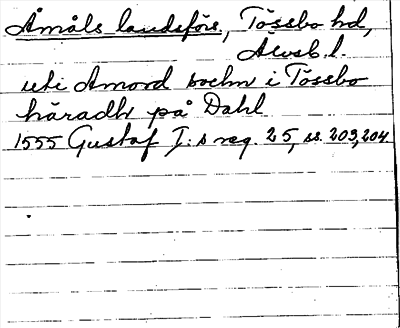 Åmåls landsförs., Tössbo hd,
Älvsb. l.
uti Amord sochn i Tössbo
häradh på Dahl
1555 Gustaf I:s reg. 25, ss. 203, 204